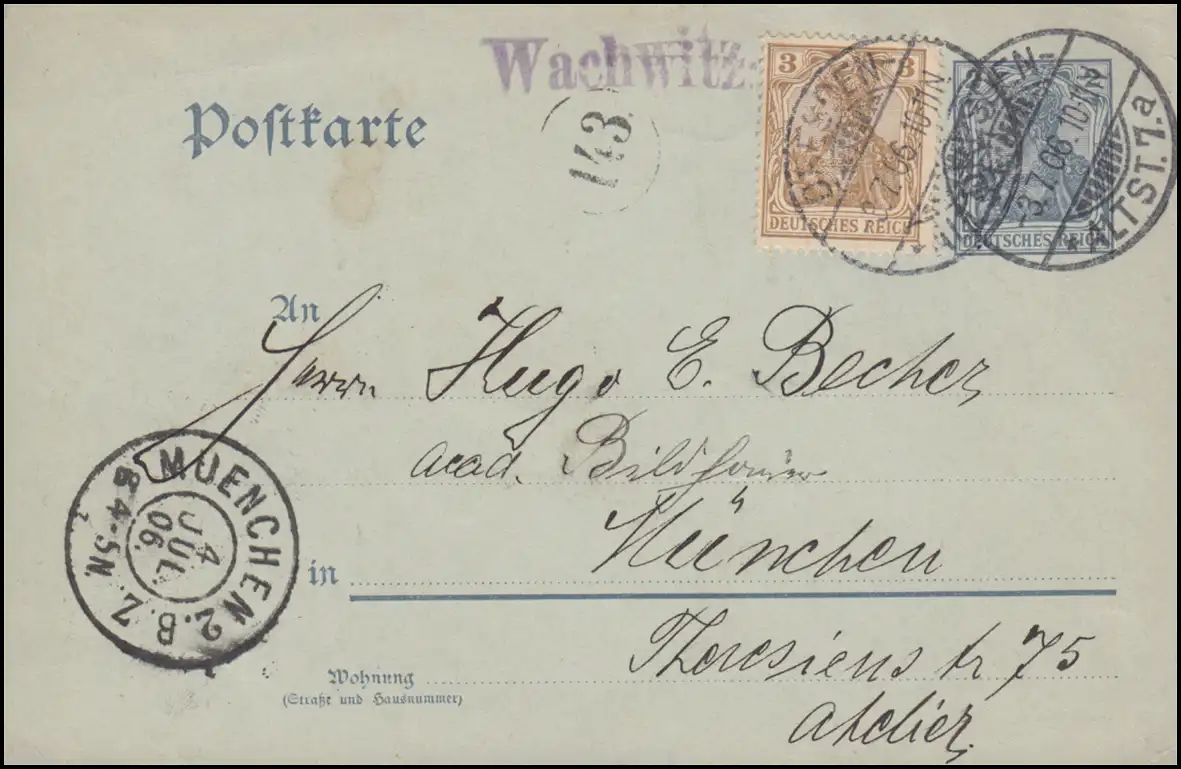 Wachwitz.
Postkarte
143
3 3
DEUTSCHES REICH
DRESDEN-
3.7.06 10-11N
DEUTSCHES REICH
DRESDEN-
-3.7.06 10-11N
* ALTST. 7. a
An
Herrn Hugo E. Becher
acad. Bildhauer
in München
Theresienstr 75
Atelier
MUENCHEN 2. B. Z.
4
JUL.
06.
4-5N.
Wohnung
(Straße und Hausnummer)